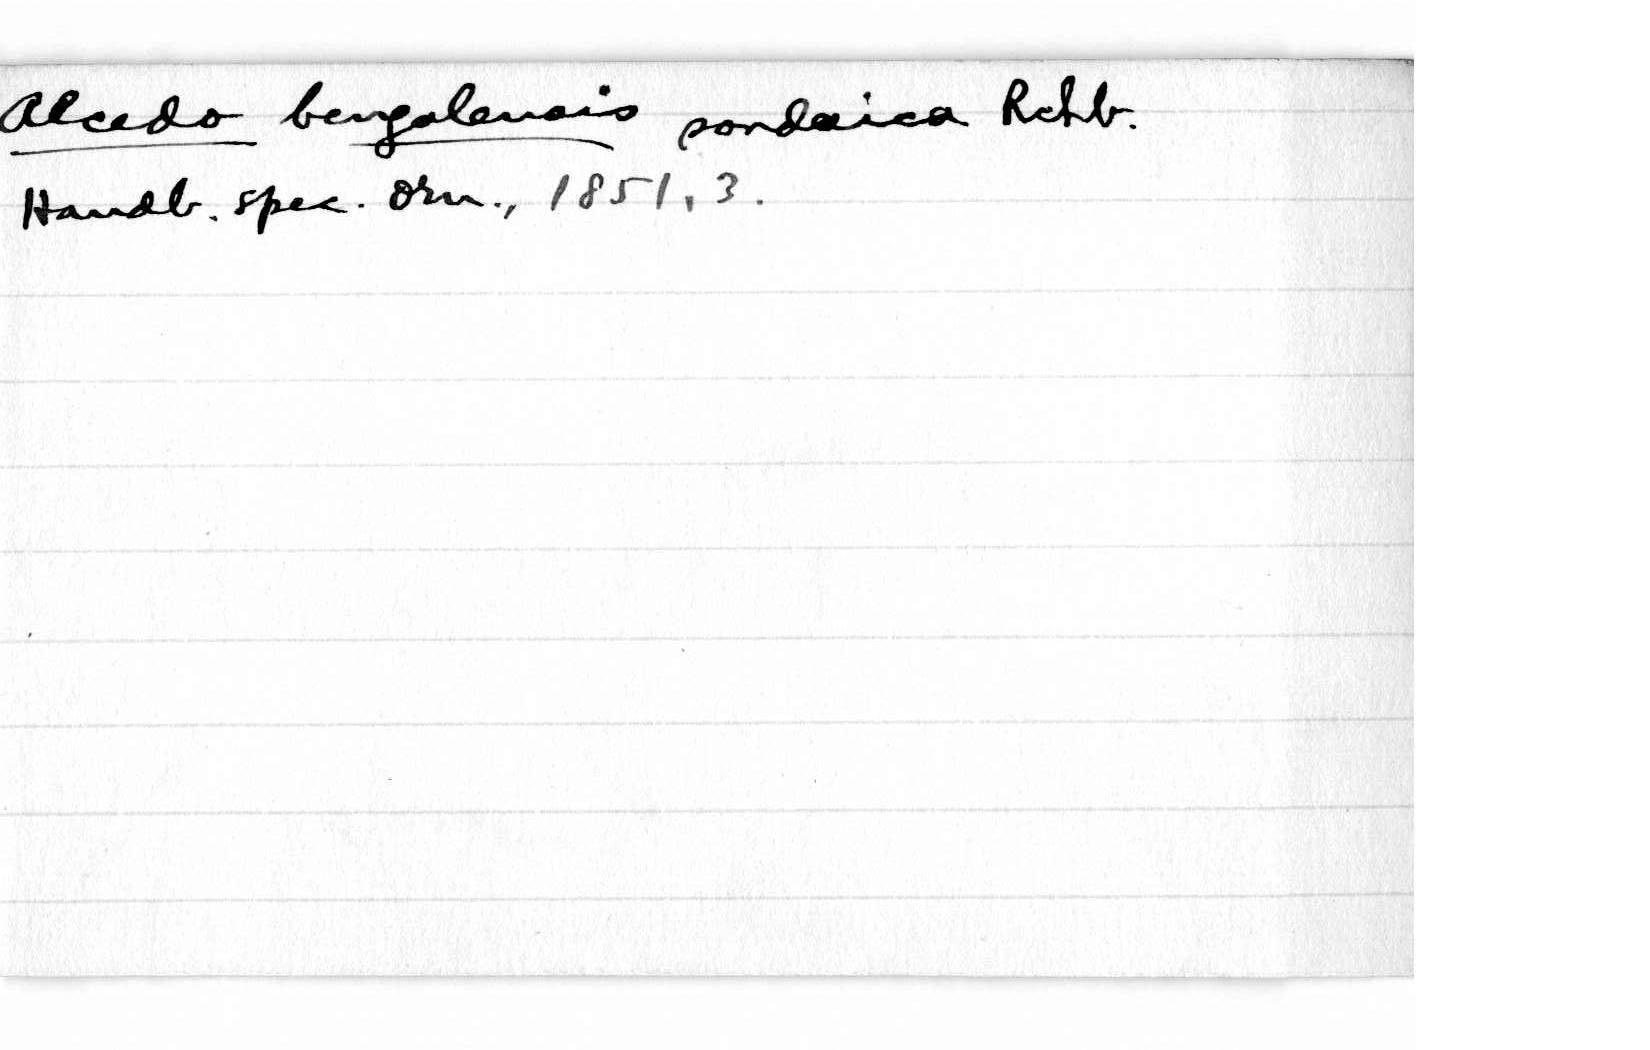 Alcedo bengalensis sondaica Rchb.
Handb. spec. Orn., 1851, 3.